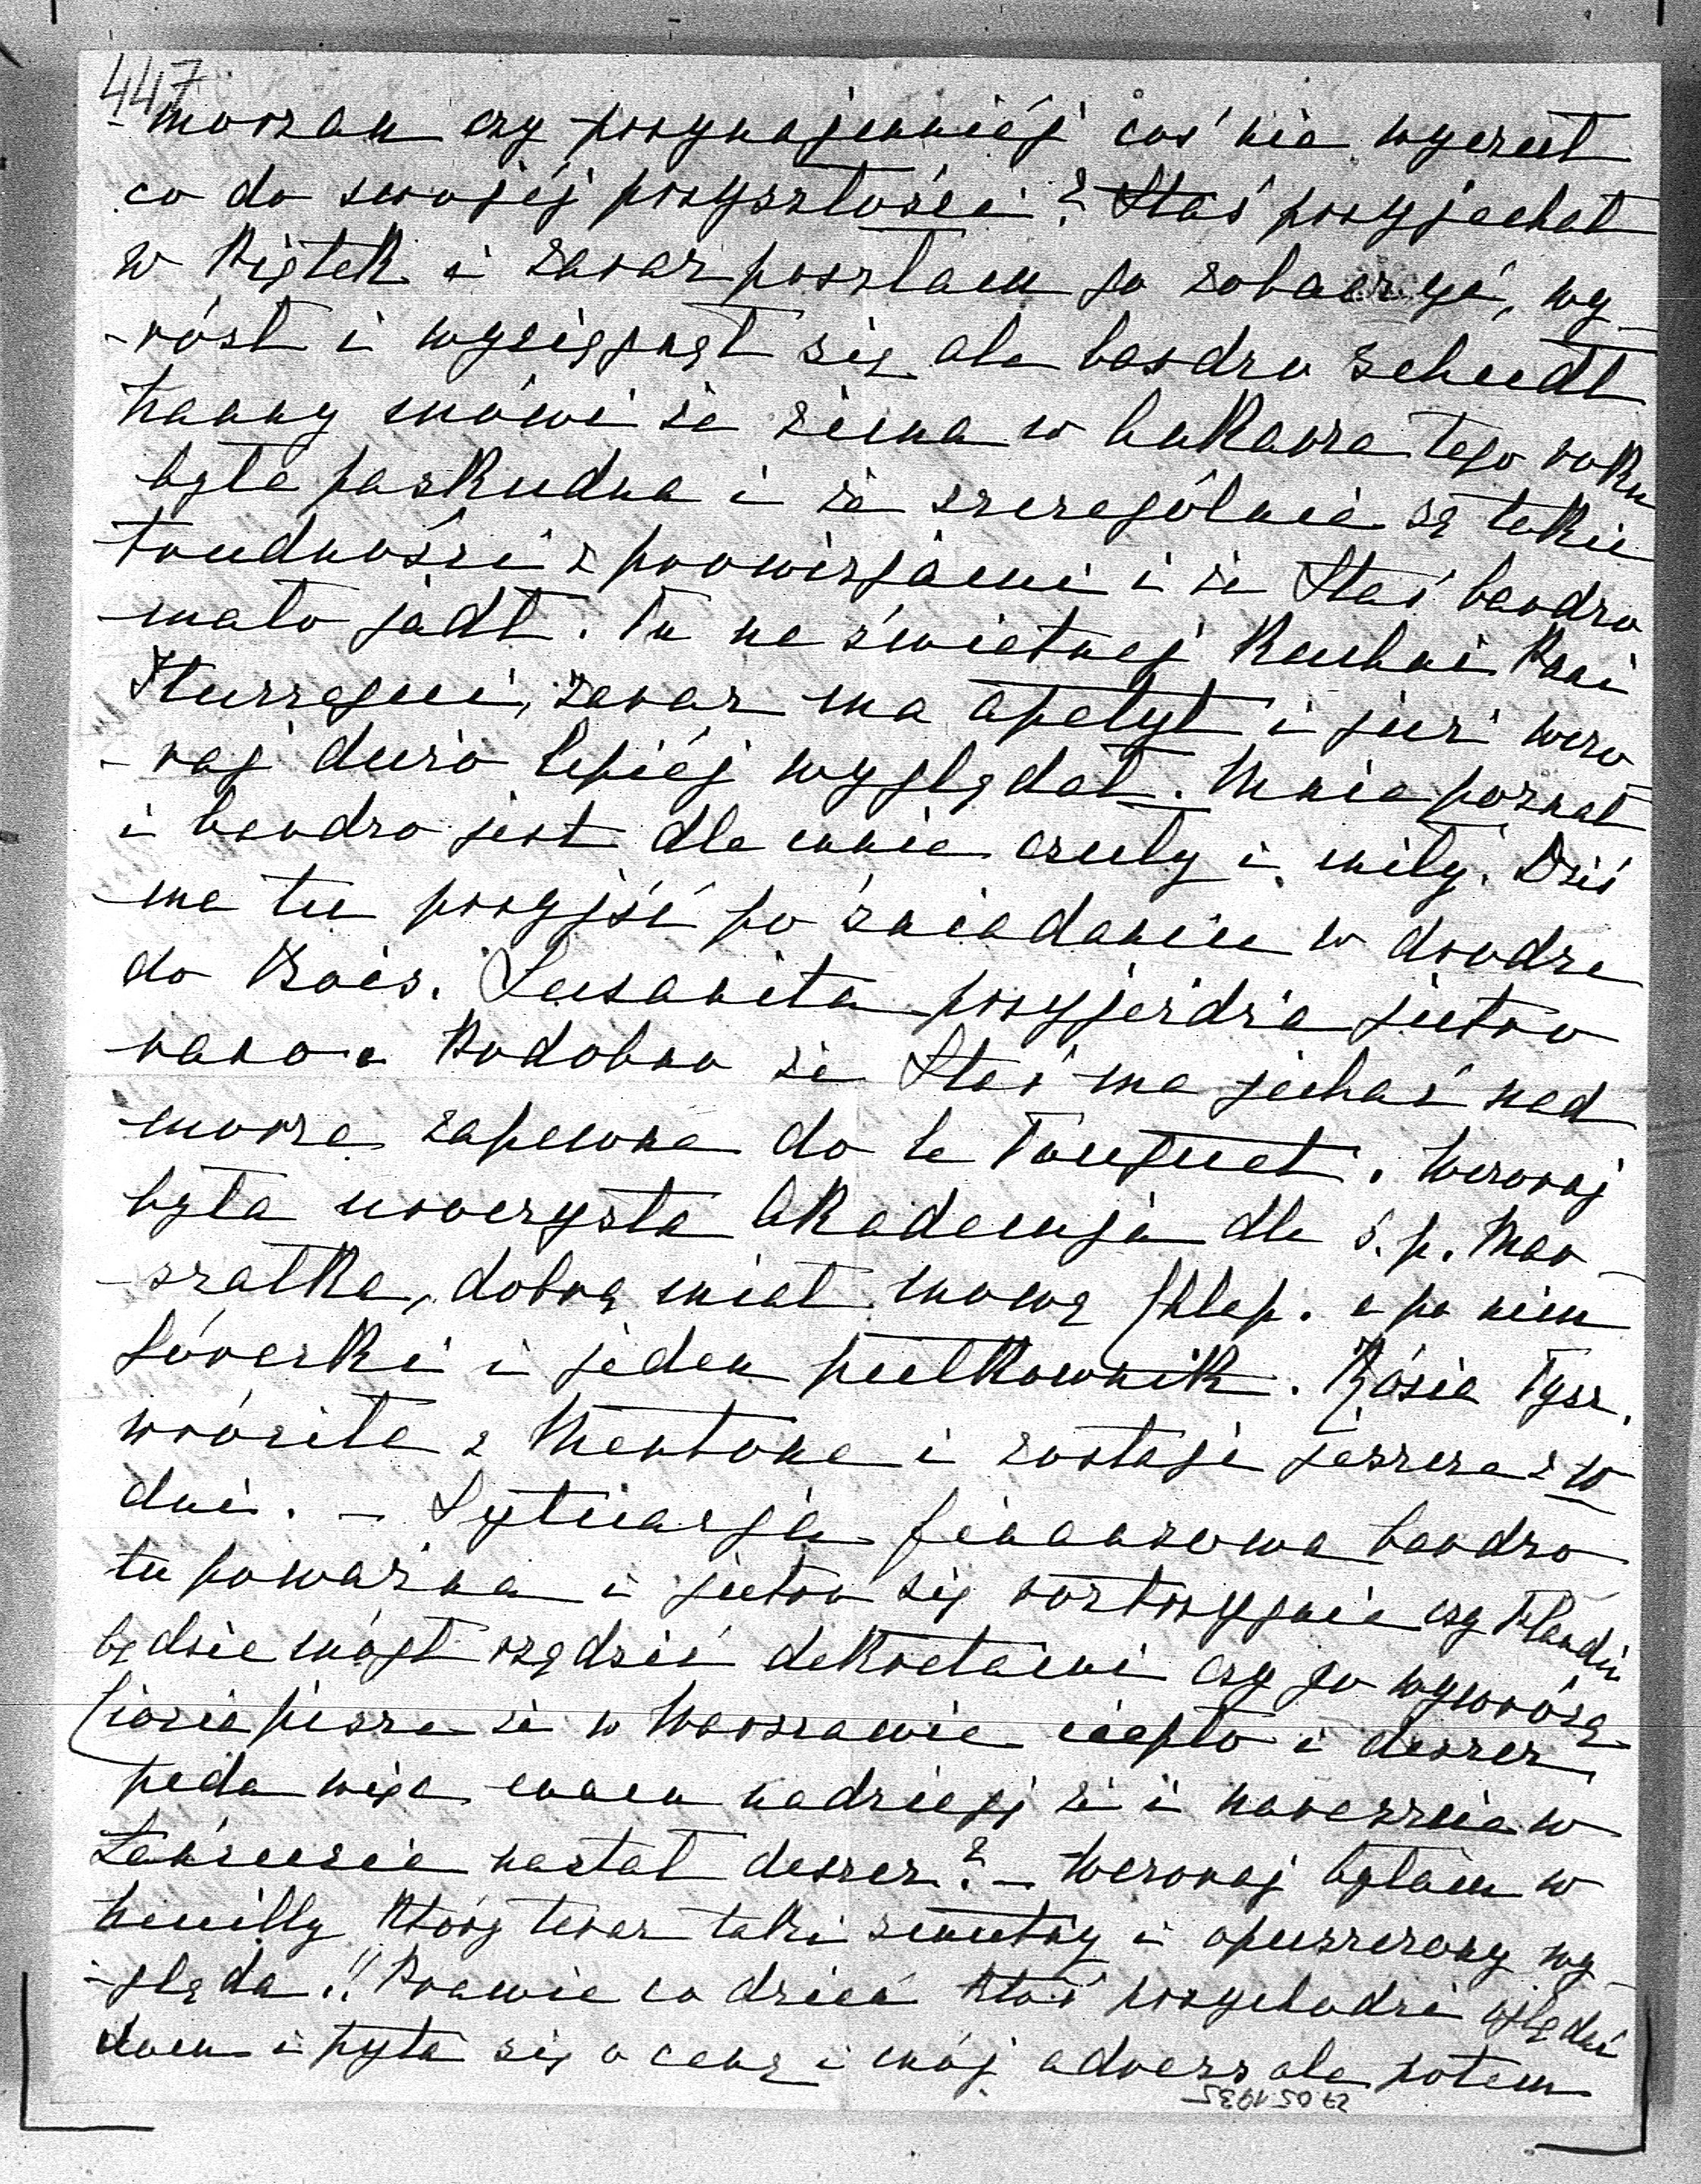 447
-morzan czy przynajmniéj coś nie wyczuł
co do swojéj przyszłości? Staś przyjechał
w Piątek i zaraz poszłam go zobaczyć, wy-
-rósł i wyciągnął się ale bardzo schudł
Nanny mówi że zima w Ankarze tego roku
była paskudna i że szczególnie są takie
trudności z prowizjami i że Staś bardzo
mało jadł. Tu na świetnej Kuchni Pani
zaraz ma apetyt i już wczo-
-raj dużo lepiéj wyglądał. Mnie poznał
i bardzo jest dla mnie czuły i miły. Dziś
ma tu przyjść po śniadaniu w drodze
do Bois. Susanita przyjeżdża jutro
rano. Podobno że Staś ma jechać nad
morze zapewne do le Touquet. Wczoraj
była uroczysta Akademja dla ś.p. Mar-
-szałka, dobrą miał mowę Chłap. a po nim
Górecki i jeden pułkownik. Rózia Tysz.
wróciła z Mentone i zostaje jeszcze
dni. – Sytuacja finansowa bardzo
tu poważna i jutro się roztrzygnie czy Flandin
będzie mógł rządzić dekretami czy go wywrócą
pisze że w Warszawie ciepło i deszcz
pada więc mam nadzieję że i nareszcie w
Łańcucie nastał deszcz? – Wczoraj byłam w
Neuilly który teraz taki smutny i opuszczony wy-
-gląda!! Prawie co dzień ktoś przychodzi oglądać
dom i pyta się o cenę i mój adress ale potem
27 05 1935